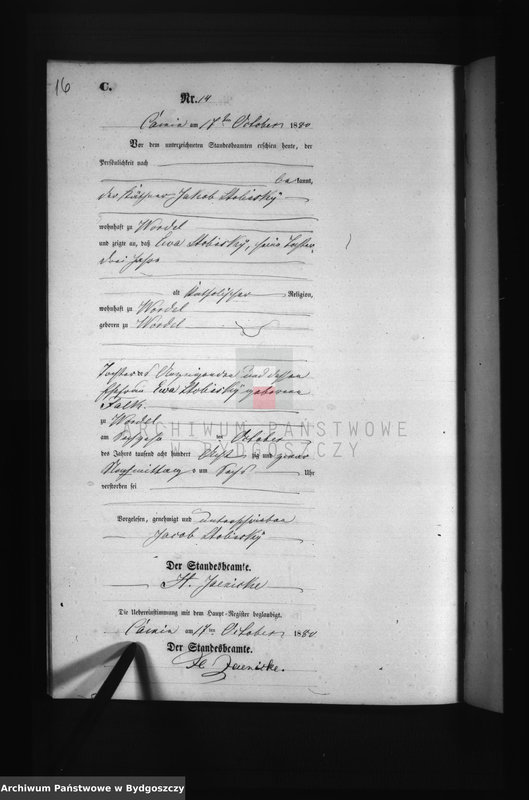 16
C.
Nr. 14
am 17ten October 1880
Vor dem unterzeichneten Standesbeamten erschien heute, der
Persönlichkeit nach
be kannt,
der Jakob Stobieský
wohnhaft zu Wordel
und zeigte an, daß Ewa Stobieský, seine Tochter,
drei Jahre
alt katholischer Religion,
wohnhaft zu Wordel
geboren zu Wordel
Tochter des und dessen
Ehefrau Ewa Stobieský geborene
Falk
zu Wordel
am ten October
des Jahres tausend acht hundert acht zig und
Nachmittags um sechs Uhr
verstorben sei
Vorgelesen, genehmigt und unterschrieben
Jacob Stobieský
Der Standesbeamte.
Jaenicke
Die Uebereinstimmung mit dem Haupt-Register beglaubigt.
am 17ten October 1880
Der Standesbeamte.
Jaenicke.
ARCHIWUM PAŃSTWOWE
W BYDGOSZCZY
Archiwum Państwowe w Bydgoszczy